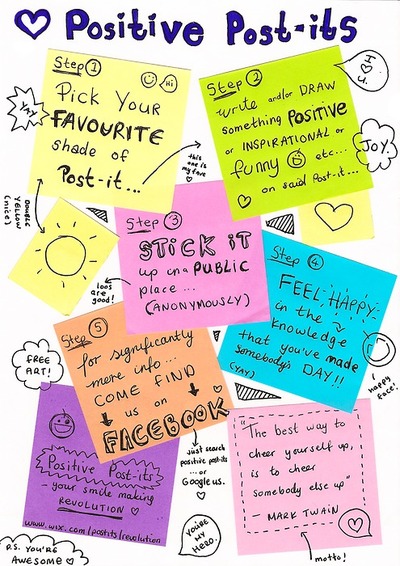 ♡ Positive Post-its
Step 1
Hi
Pick Your
FAVOURITE
shade of
Post-it...
YAY
this
one is
my fave
♡
Step 2
write and/or DRAW
something POSITIVE
or INSPIRATIONAL or
funny etc...
on said Post-it...
♡
JOY.
DOUBLE
YELLOW
(nice)
Step 3
STICK iT
up in a PUBLIC
place...
(ANONYMOUSLY)
loos
are
good!
Step 4
FEEL HAPPY
in the
knowledge
that you've made
somebody's
DAY!!
(YAY)
happy
face!
Step 5
for significantly
more info...
COME FIND
us on
FACEBOOK
FREE
ART!
just search
positive post-its
... or
Google us.
♡
Positive Post-its
- your smile making
REVOLUTION ♡
www.wix.com/postits/revolution
P.S. YOU'RE
AWESOME ♡
YOU'RE
MY
HERO.
"The best way to
cheer yourself up,
is to cheer
somebody else up"
- MARK TWAIN
motto!